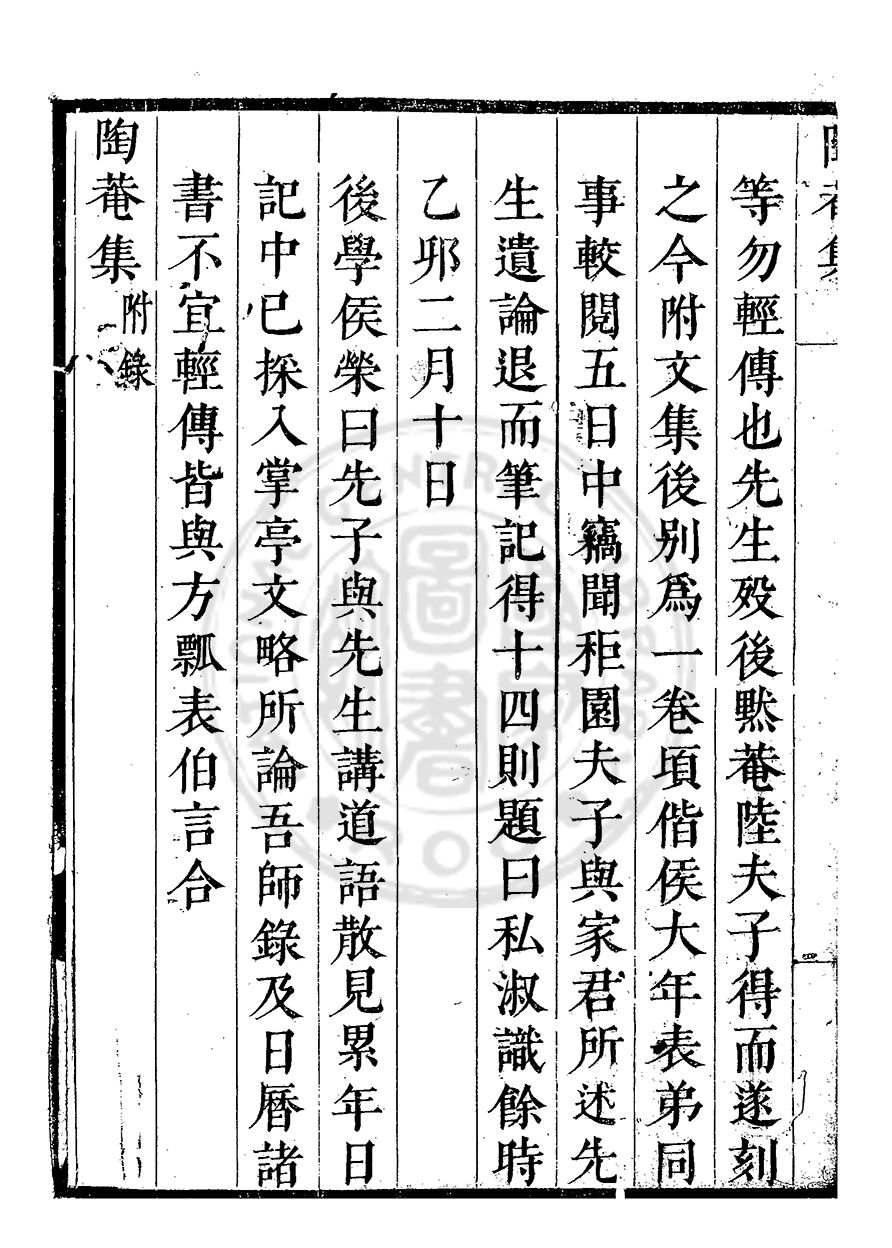 等勿輕傳也先生歿後黙菴陸夫子得而遂刻
之今附文集後别爲一卷頃偕侯大年表弟同
事較閱五日中竊聞秬園夫子與家君所述先
生遺論退而筆記得十四則題曰私淑識餘時
乙夘二月十日
後學侯榮曰先子與先生講道語散見累年日
記中已採入掌亭文略所論吾師錄及日曆諸
書不宜輕傳皆與方瓢表伯言合
陶菴集附錄